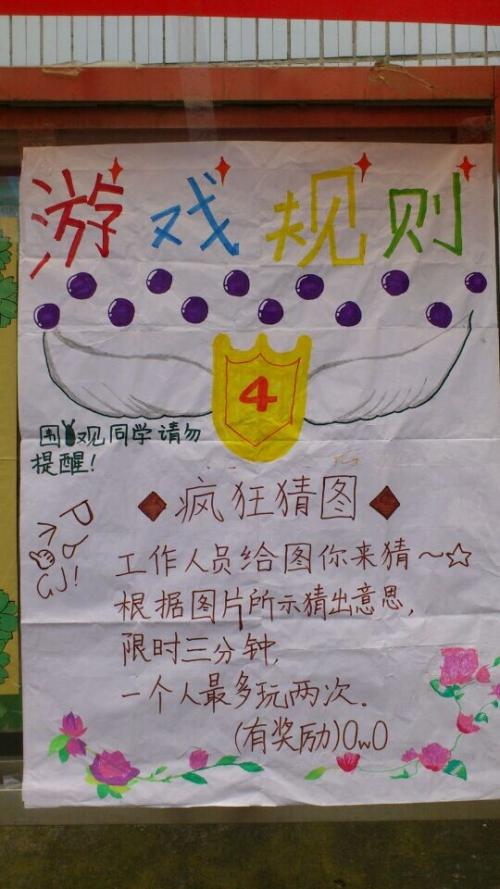 游戏规则
4
围观同学请勿
提醒！
◆疯狂猜图◆
工作人员给图你来猜～☆
根据图片所示猜出意思，
限时三分钟，
一个人最多玩两次。
(有奖励)OwO